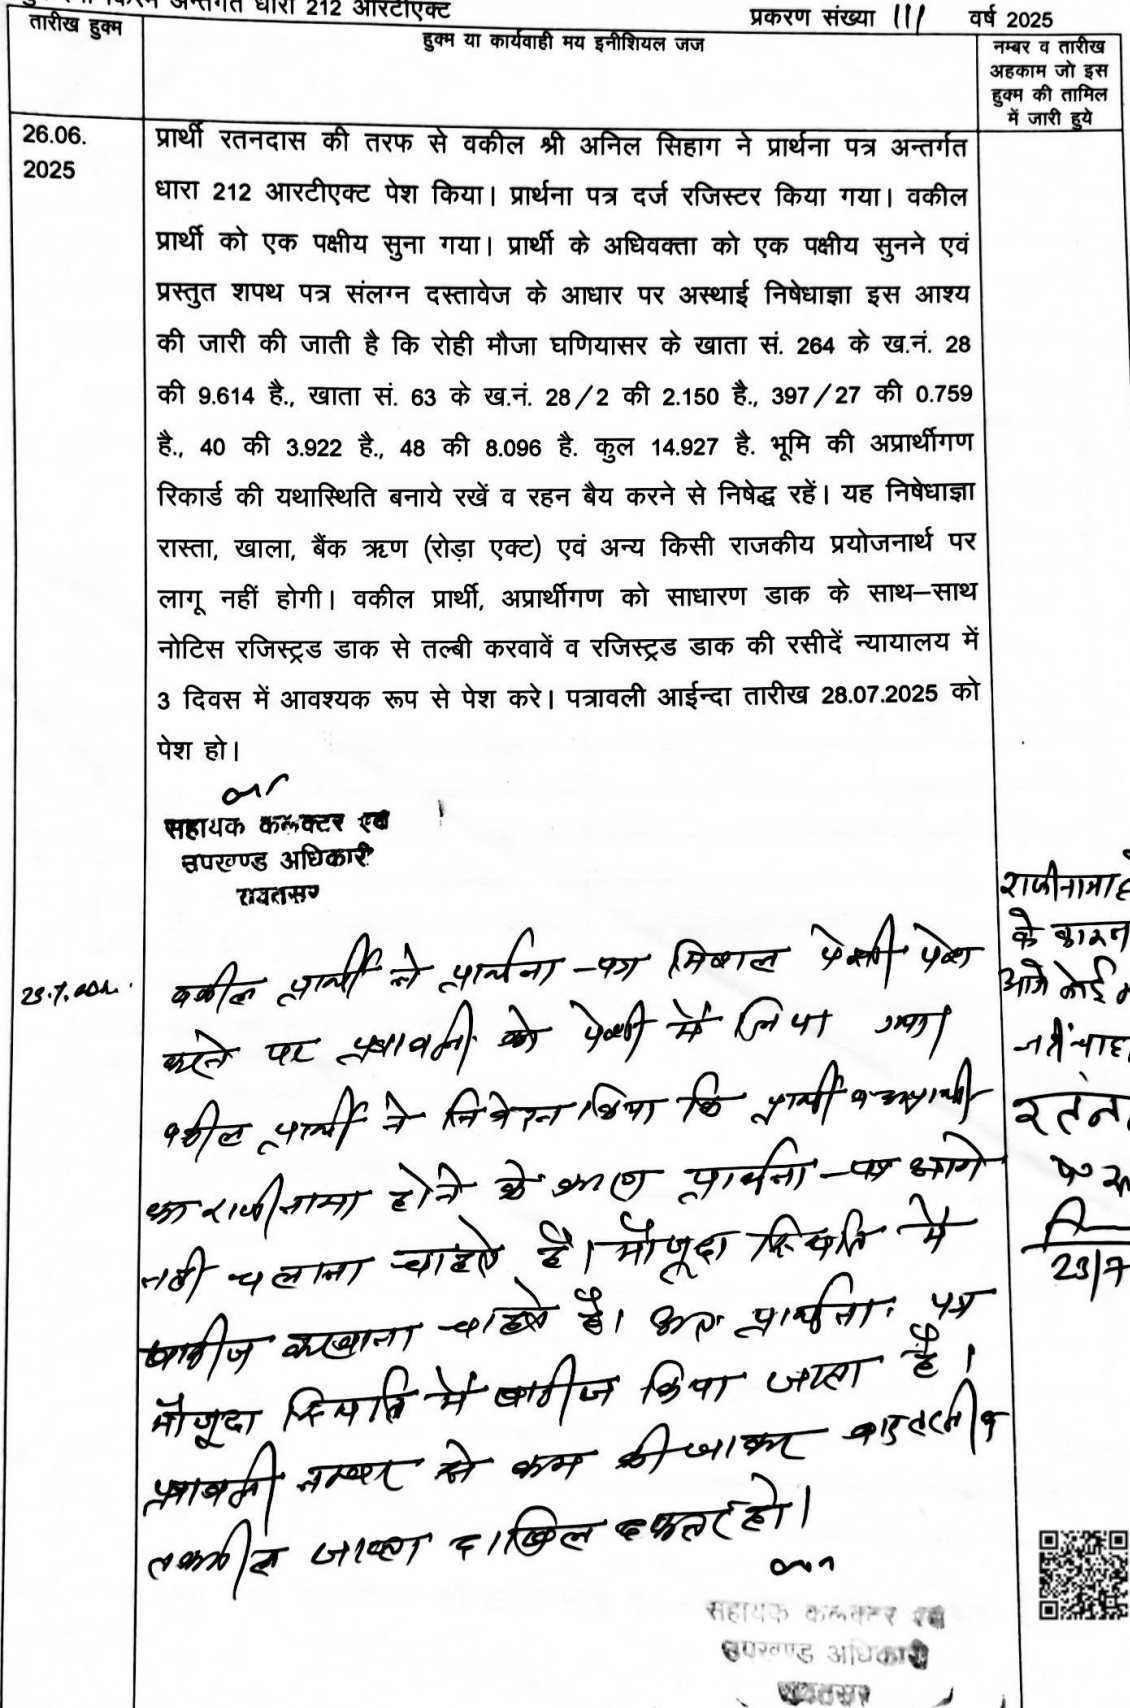 अन्तर्गत धारा 212 आरटीएक्ट
प्रकरण संख्या 111 वर्ष 2025
तारीख हुक्म
हुक्म या कार्यवाही मय इनीशियल जज
नम्बर व तारीख
अहकाम जो इस
हुक्म की तामिल
में जारी हुये
26.06.
2025
प्रार्थी रतनदास की तरफ से वकील श्री अनिल सिहाग ने प्रार्थना पत्र अन्तर्गत
धारा 212 आरटीएक्ट पेश किया। प्रार्थना पत्र दर्ज रजिस्टर किया गया। वकील
प्रार्थी को एक पक्षीय सुना गया। प्रार्थी के अधिवक्ता को एक पक्षीय सुनने एवं
प्रस्तुत शपथ पत्र संलग्न दस्तावेज के आधार पर अस्थाई निषेधाज्ञा इस आश्य
की जारी की जाती है कि रोही मौजा घणियासर के खाता सं. 264 के ख.नं. 28
की 9.614 है., खाता सं. 63 के ख.नं. 28/2 की 2.150 है., 397/27 की 0.759
है., 40 की 3.922 है., 48 की 8.096 है. कुल 14.927 है. भूमि की अप्रार्थीगण
रिकार्ड की यथास्थिति बनाये रखें व रहन बैय करने से निषेद्ध रहें। यह निषेधाज्ञा
रास्ता, खाला, बैंक ऋण (रोड़ा एक्ट) एवं अन्य किसी राजकीय प्रयोजनार्थ पर
लागू नहीं होगी। वकील प्रार्थी, अप्रार्थीगण को साधारण डाक के साथ–साथ
नोटिस रजिस्ट्रड डाक से तल्बी करवावें व रजिस्ट्रड डाक की रसीदें न्यायालय में
3 दिवस में आवश्यक रूप से पेश करे। पत्रावली आईन्दा तारीख 28.07.2025 को
पेश हो।
सहायक कलक्टर एवं
उपखण्ड अधिकारी
रावतसर
वकील प्रार्थी ने प्रार्थना-पत्र मिशल पेशी पेश
करने पर पत्रावली को पेशी में लिया गया
वकील प्रार्थी ने निवेदन किया कि प्रार्थी व अप्रार्थी
का राजीनामा होने के कारण प्रार्थना-पत्र आगे
नही चलाना चाहते है। मौजूदा स्थिति में
खारीज करवाना चाहते है। अतः प्रार्थना पत्र
मौजूदा स्थिति में खारीज किया जाता है।
पत्रावली नम्बर से कम की जाकर बाद तरतीब
तकमील जाब्ता दाखिल दफ्तर हो।
राजीनामा
के कारन
आगे कोई
23/7
सहायक कलक्टर एवं
उपखण्ड अधिकारी
रावतसर